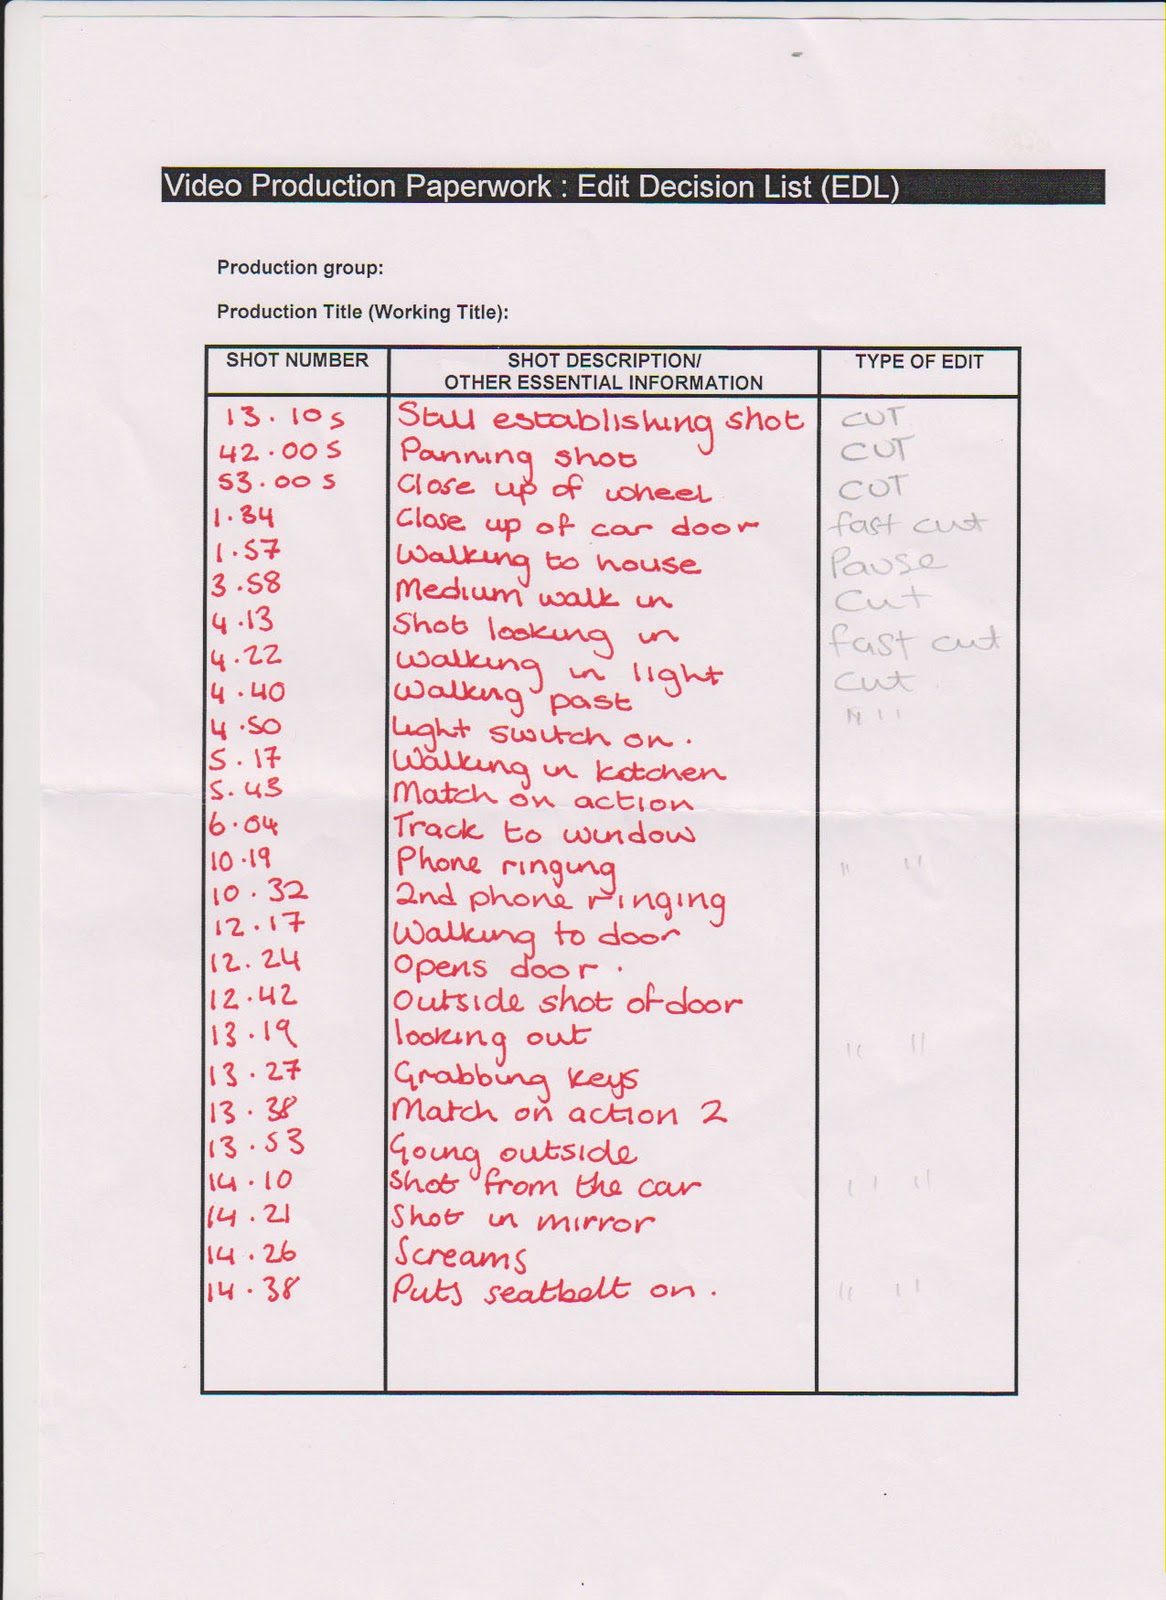 Video Production Paperwork : Edit Decision List (EDL)
Production group:
Production Title (Working Title):
SHOT NUMBER SHOT DESCRIPTION/ OTHER ESSENTIAL INFORMATION TYPE OF EDIT
13.10s Still establishing shot CUT
42.00s Panning shot CUT
53.00s Close up of wheel CUT
1.34 Close up of car door fast cut
1.57 Walking to house Pause
3.58 Medium walk in Cut
4.13 Shot looking in fast cut
4.22 Walking in light cut
4.40 Walking past " "
4.50 Light switch on.
5.17 Walking in kitchen
5.43 Match on action
6.04 Track to window
10.19 Phone ringing " "
10.32 2nd phone ringing
12.17 Walking to door
12.24 Opens door.
12.42 Outside shot of door
13.19 looking out " "
13.27 Grabbing keys
13.38 Match on action 2
13.53 Going outside
14.10 Shot from the car " "
14.21 Shot in mirror
14.26 Screams
14.38 Puts seatbelt on. " "